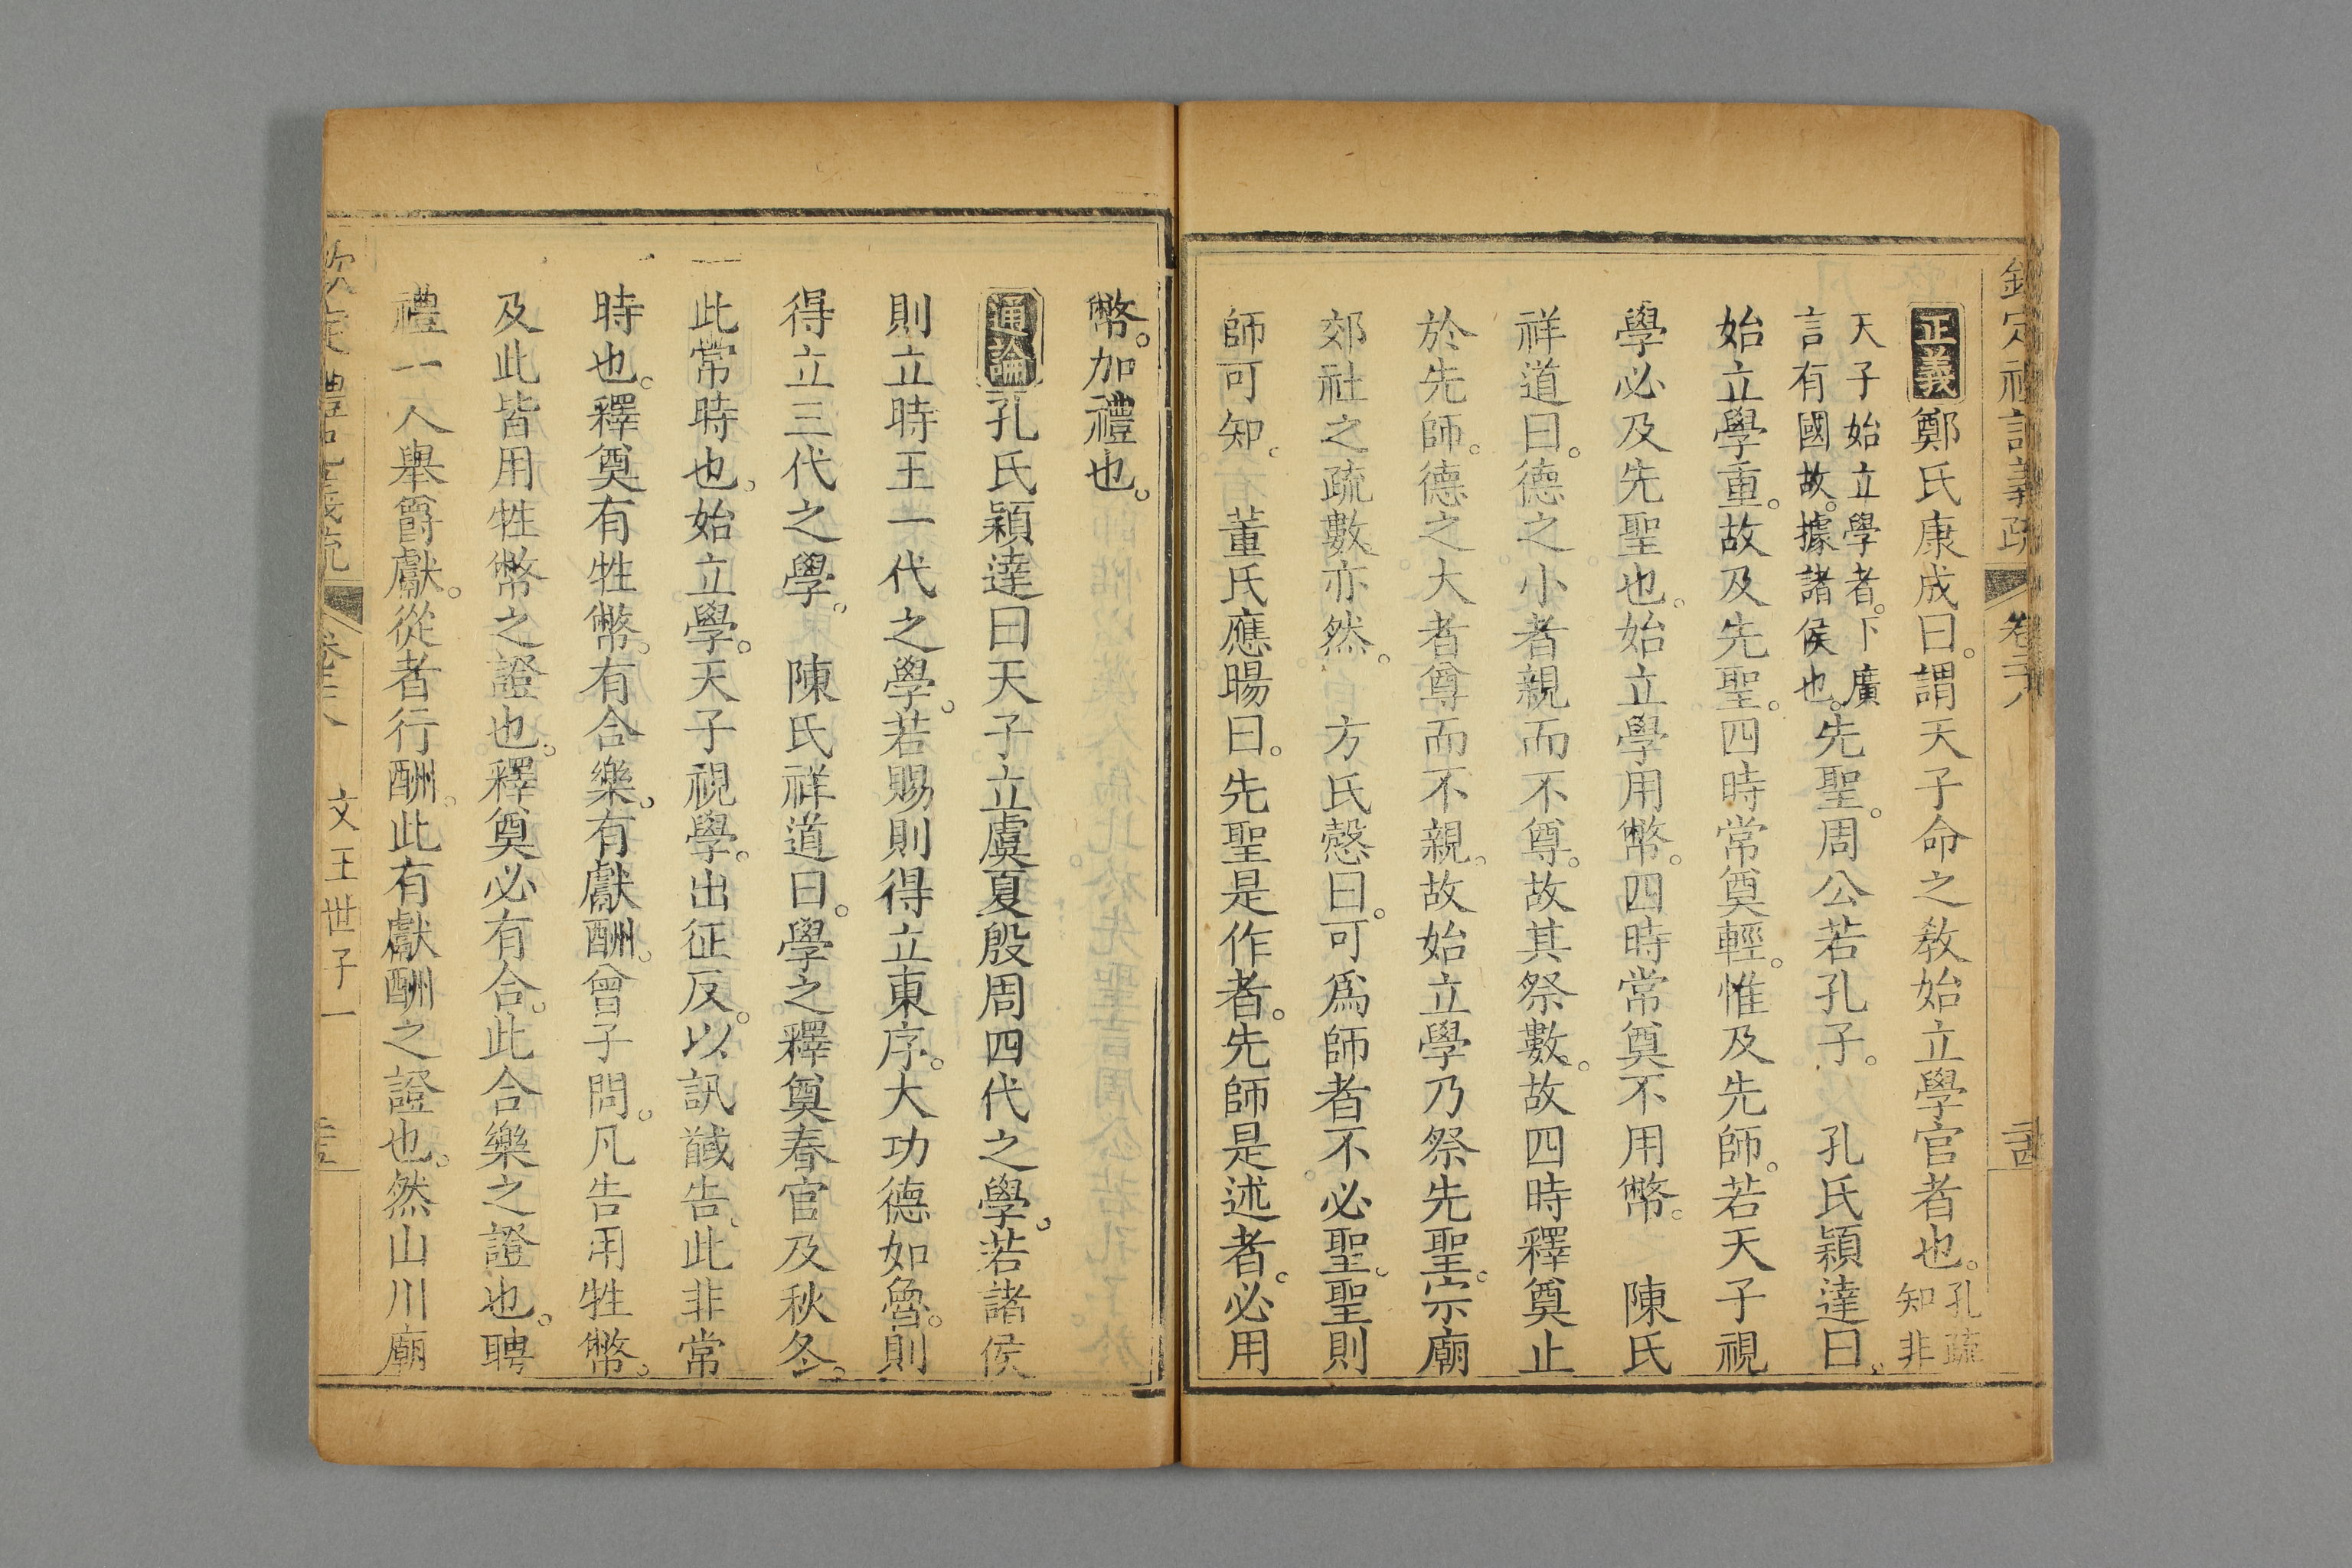 欽定禮記義疏 卷二十八 二十四
正義鄭氏康成曰。謂天子命之敎始立學官者也。孔疏知非
天子始立學者。下廣言有國故。據諸侯也。先聖。周公若孔子。 孔氏穎達曰。
始立學重。故及先聖。四時常奠輕。惟及先師。若天子視
學必及先聖也。始立學用幣。四時常奠不用幣。 陳氏
祥道曰。德之小者親而不尊。故其祭數。故四時釋奠止
於先師。德之大者尊而不親。故始立學乃祭先聖。宗廟
郊社之疏數亦然。 方氏慤曰。可爲師者不必聖。聖則
師可知。 董氏應暘曰。先聖是作者。先師是述者。必用
幣。加禮也。
通論孔氏穎達曰天子立虞夏殷周四代之學。若諸侯
則立時王一代之學。若賜則得立東序。大功德如魯。則
得立三代之學。 陳氏祥道曰。學之釋奠春官及秋冬。
此常時也。始立學。天子視學。出征反。以訊馘告。此非常
時也。釋奠有牲幣。有合樂。有獻酬。曾子問。凡告用牲幣。
及此皆用牲幣之證也。釋奠必有合。此合樂之證也。聘
禮一人舉爵獻。從者行酬。此有獻酬之證也。然山川廟
欽定禮記義疏 卷二十八 文王世子一 二十五